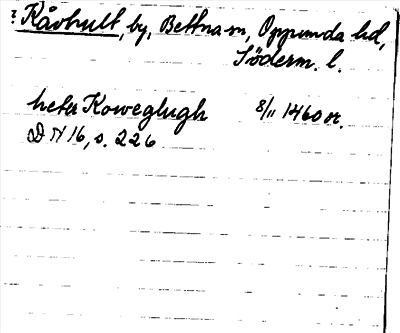 ? Kåvhult, by, Bettna sn, Oppunda hd,
Söderm. l.
heter Koweglugh 8/11 1460 or.
D N 16, s. 226